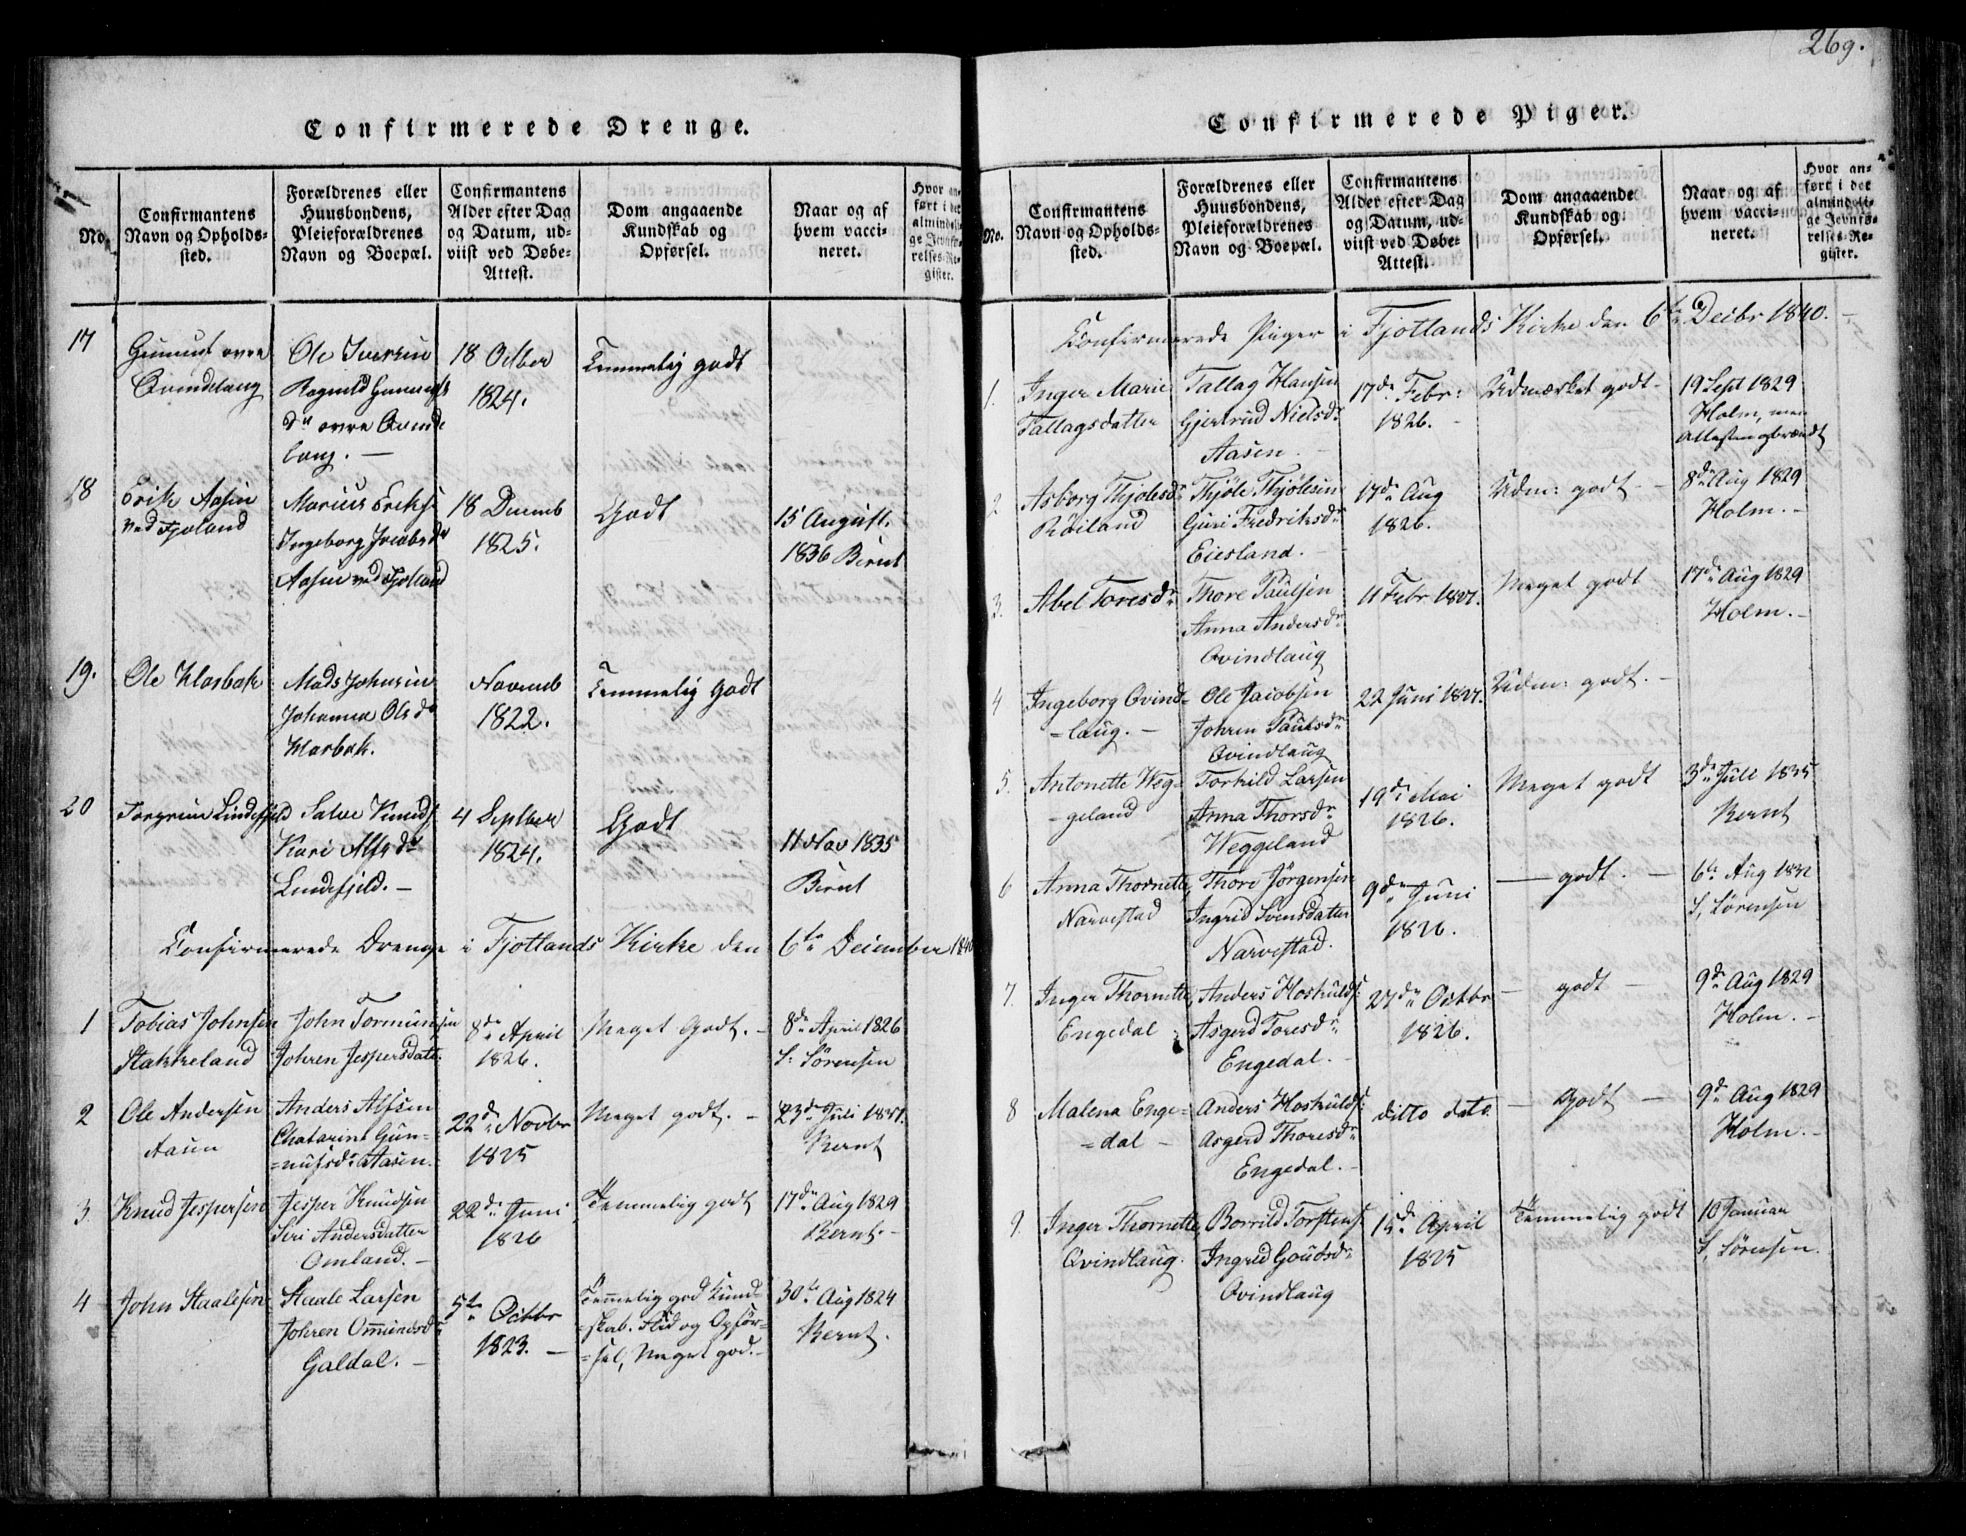 269.
Confirmerede Drenge.
No.
Confirmantens
Navn og Opholds-
sted.
Forældrenes eller
Huusbondens,
Pleieforældrenes
Navn og Boepæl.
Confirmantens
Alder efter Dag
og Datum, ud-
viist ved Døbe-
Attest.
Dom angaaende
Kundskab og
Opførsel.
Naar og af
hvem vacci-
neret.
Hvor an-
ført i det
almindeli-
ge Jevnfø-
relses-Re-
gister.
17
Gunnuf øvre
Qvindlaug
Ole Iversen
Ragnild Gunnufs
dr øvre Qvind
laug. —
18 Octber
1824.
Temmelig godt
18
Erik Aasen
ved Fjotland
Marius Eriks.
Ingeborg Jacobsdr
Aasen ved Fjotland
18 Decemb
1825.
Godt
15 August.
1836 Bernt
19.
Ole Klosbøk
Mads Johnsen
Johanna Olsdr
Klosbøk.
Novemb
1822.
Temmelig Godt
20
Torgrim Lindefjeld
Salve Knuds.
Kari Alfsdr
Lindefjeld. —
4 Septber
1824.
Godt
11 Nov 1835
Bernt
Confirmerede Drenge i Fjotlands Kirke den 6te December 1840
1
Tobias Johnsen
Stakkeland
John Tormunsen
Johren Jespersdatr.
8de April
1826.
Meget Godt. —
8de April 1826
S: Sörensen
2
Ole Andersen
Aasen
Anders Alfsen
Chatarine Gun-
=nufsdr Aasen.
22de Novbr
1825
Meget godt. —
23de Juli 1831.
Bernt
3
Knud Jespersen
Jesper Knudsen
Siri Andersdatter
Omland. —
22de Juni
1826
Temmelig godt
17de Aug 1829
Bernt. —
4
John Staalesen
Staale Larsen
Johren Omundsdr
Galdal. —
5te Octbr
1823. —
Temmelig god Kund-
=skab. Flid og Opför-
=sel, Meget god. —
30te Aug 1824
Bernt.
Confirmerede Piger.
No.
Confirmantens
Navn og Opholds-
sted.
Forældrenes eller
Huusbondens,
Pleieforældrenes
Navn og Boepæl.
Confirmantens
Alder efter Dag
og Datum, ud-
viist ved Døbe-
Attest.
Dom angaaende
Kundskab og
Opførsel.
Naar og af
hvem vacci-
neret.
Hvor an-
ført i det
almindeli-
ge Jevnfø-
relses-Re-
gister.
Confirmerede Piger i Fjotlands Kirke den 6te Decbr 1840. —
1.
Inger Marie
Tallagsdatter
Tallag Hansen
Gjertrud Nielsdr
Aasen. —
17de Febr:
1826. —
Udmærket godt —
19 Sept 1829
Holm, men
Attesten opbrændt
2
Asborg Thjølsdr
Röiland
Thjöle Thjölesen
Guri Fredriksdr
Eiesland. —
17de Aug
1826.
Udm: godt. —
8de Aug 1829
Holm. —
3.
Abel Toresdr
Thore Paulsen
Anna Andersdr
Qvindlaug
11 Febr 1827.
Meget godt
17de Aug 1829
Holm. —
4
Ingeborg Qvind-
=laug. —
Ole Jacobsen
Johren Paulsdr
Qvindlaug
22 Juni 1827.
Udm: godt. —
5.
Antonette Weg-
-geland
Torkild Larsen
Anna Thorsdr
Weggeland
19de Mai
1826.
Meget godt
3de Juli 1835
Bernt
6
Anna Thornette
Narvestad
Thore Jörgensen
Ingrid Svensdatter
Narvestad.
9de Juni
1826.
— godt. —
6te Aug 1832
S, Sörensen
7.
Inger Thornette
Engedal
Anders Hoskulds:
Asgerd Toresdr
Engedal. —
27de Octbr
1826.
— godt —
9de Aug 1829
Holm. —
8
Malena Enge-
=dal —
Anders Hoskulds:
Asgerd Thoresdr
Engedal. —
ditto dato.
— Godt —
9de Aug 1829
Holm. —
9.
Inger Thornette
Qvindlaug.
Borrild Torstens:
Ingrid Goudsdr
Qvindlaug
15de April
1825
Temmelig godt
10 Januar
S, Sörensen.